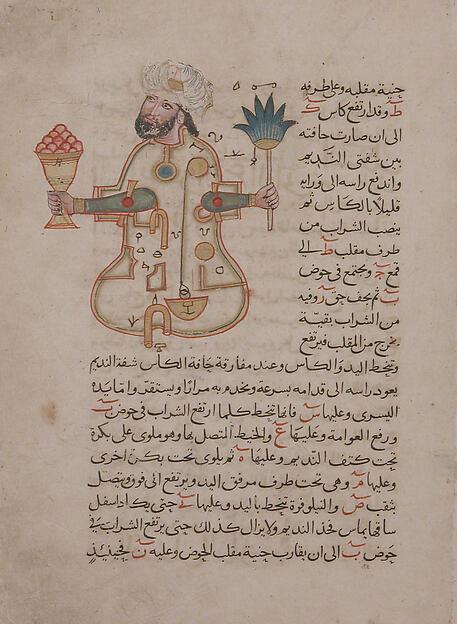 جنبة مقلبه وعلى طرفه
ط وقد ارتفع كاس ك
الى ان صارت حافته
بين شفتى النديم
واندفع راسه الى ورايه
قليلا بالكاس ثم
ينصب الشراب من
طرف مقلب ط الى
قمع ج ويجتمع فى حوض
ب ثم يجف حق وفيه
من الشراب بقية
يخرج من المقلب فيرتفع
وتنحط اليد والكاس وعند مفارقة حافة الكاس شفة النديم
يعود راسه الى قدامه بسرعة ويخدم به مرارا ويستقر واما يده
اليسرى وعليها س فانها تنحط كلما ارتفع الشراب فى حوض ب
ورفع العوامة وعليها ع والخيط المتصل بها وهو ملوى على بكرة
تحت كتف النديم وعليها ه ثم يلوى تحت بكرة اخرى
وعليها م وهى تحت طرف مرفق اليد ويرتفع الى فوق ويتصل
بثقب ص والنيلوفرة تنحط باليد وعليها ف حتى يكاد اسفل
ساقها يماس فخذ النديم ولا يزال كذلك حتى يرتفع الشراب فى
حوض ب الى ان يقارب جنبة مقلب الحوض وعليه ن فحينئذ